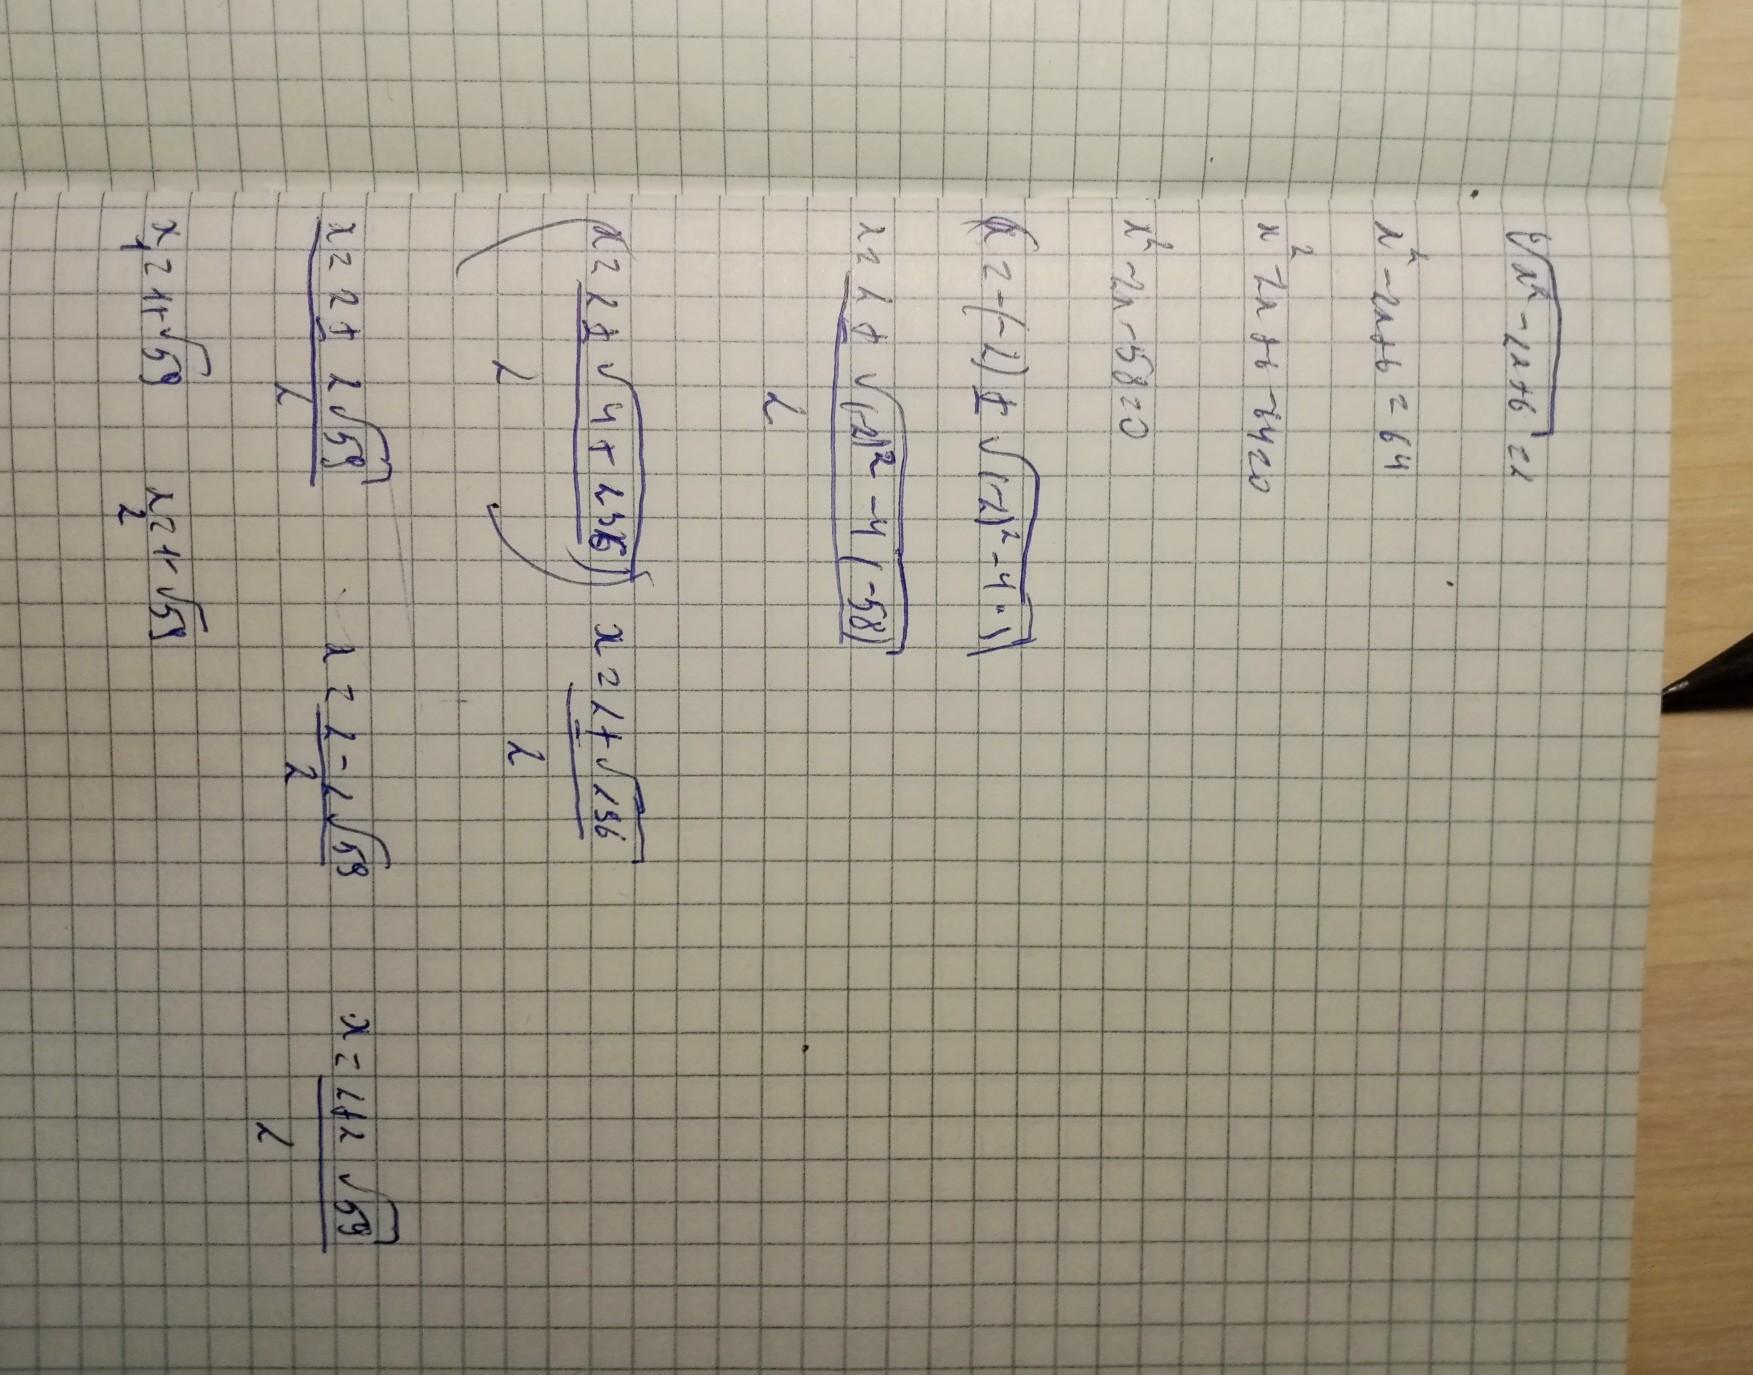 ⁶√x²-2x+6 = 2
x²-2x+6 = 64
x²-2x+6-64=0
x²-2x-58=0
x=-(-2)±√(-2)²-4·1
x=2±√(-2)²-4(-58)
2
x=2±√4+236 x=2±√236
2 2
x=2+2√59 x=2-2√59 x=2+2√59
2 2 2
x₁=1+√59 x₂=1-√59